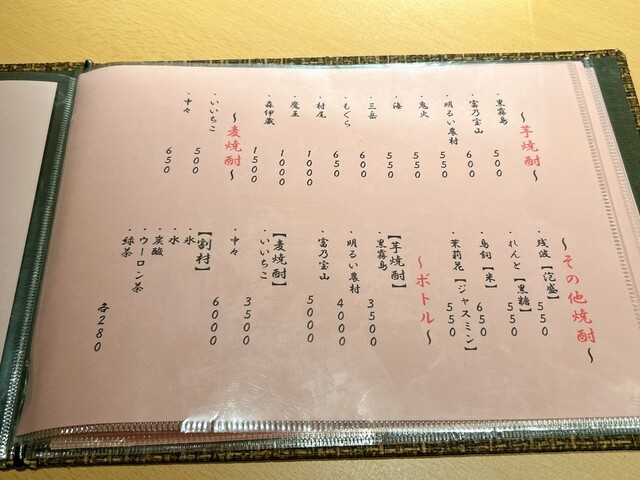 ～芋焼酎～
・黒霧島 500
・富乃宝山 600
・明るい農村 550
・鬼火 550
・海 550
・三岳 600
・もぐら 650
・村尾 1000
・魔王 1000
・森伊蔵 1500
～麦焼酎～
・いいちこ 500
・中々 650
～その他焼酎～
・残波【泡盛】 550
・れんと【黒糖】 550
・鳥飼【米】 650
・茉莉花【ジャスミン】 550
～ボトル～
【芋焼酎】
・黒霧島 3500
・明るい農村 4000
・富乃宝山 5000
【麦焼酎】
・いいちこ 3500
・中々 6000
【割材】
・氷
・水
・炭酸
・ウーロン茶
・緑茶
各280